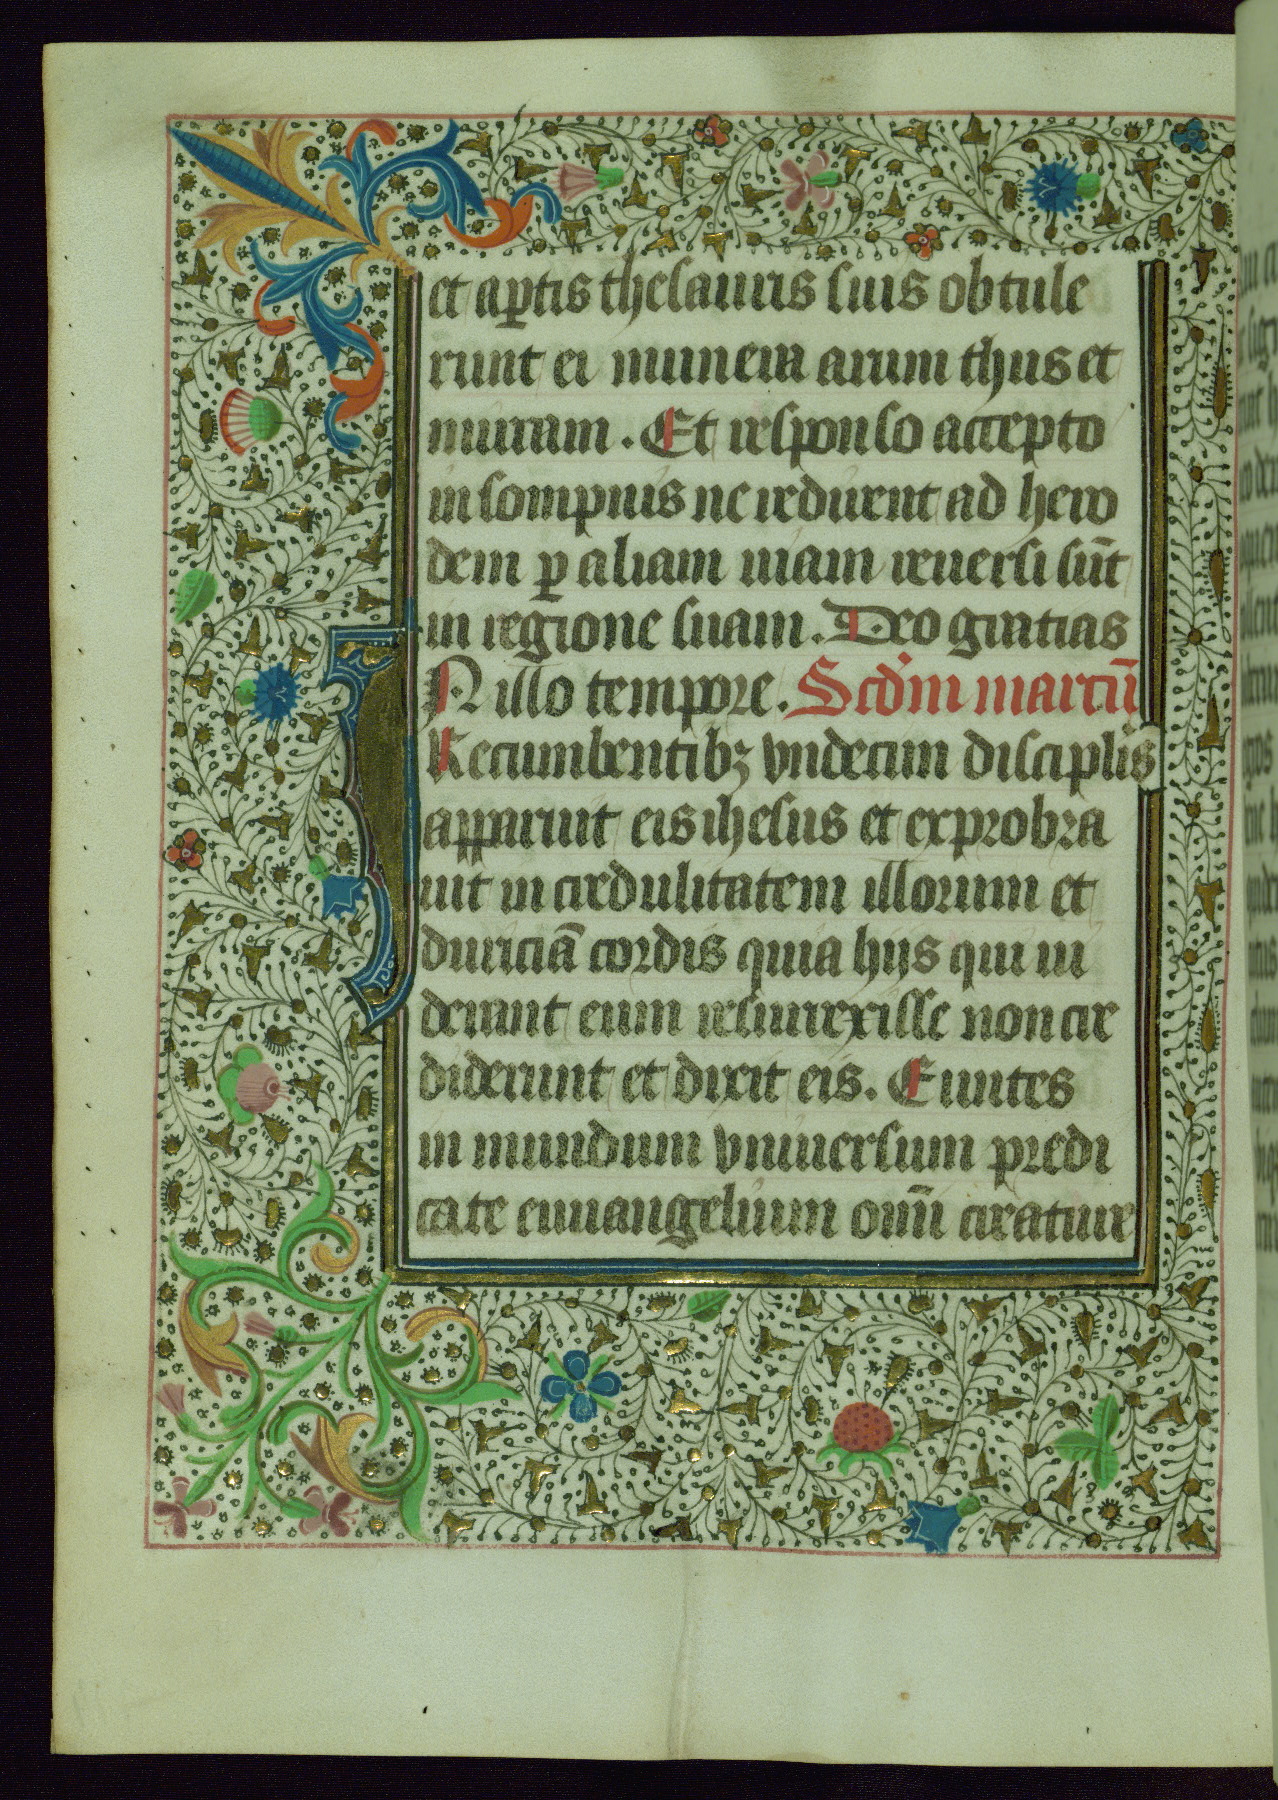 et aptis thesauris suis obtule
runt ei munera aurum thus et
mirram. Et responso accepto
in sompnis ne redirent ad hero
dem p aliam uiam reuersi sūt
in regione suam. Deo gratias
IN illo tempore. Scdm marcū
Recumbentibz vndecim disciplis
apparuit eis ihesus et exprobra
uit in credulitatem illorum et
duriciā cordis quia hijs qui ui
derant eum resurrexisse non cre
diderunt et dixit eis. Euntes
in mundum vniuersum predi
cate euuangelium omī creature